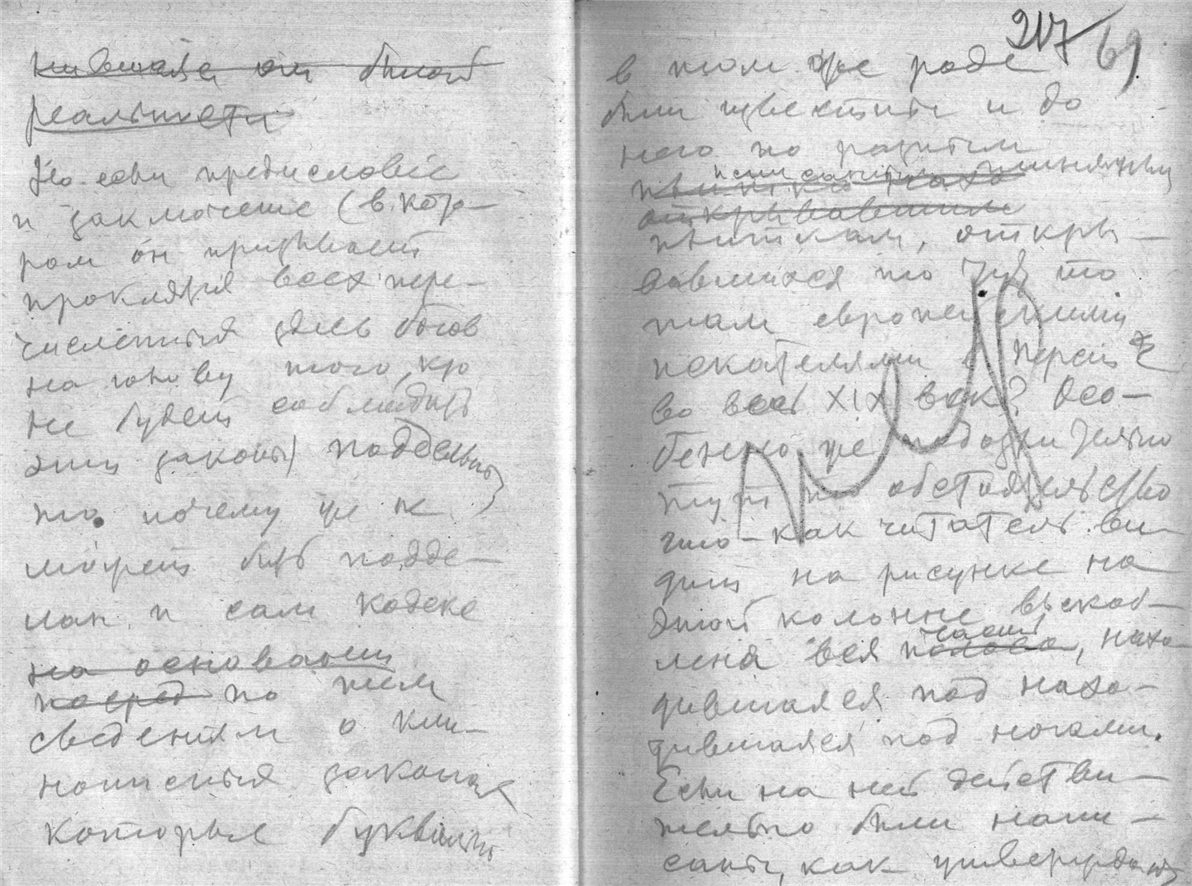 реальности
Но если предисловіе
и заключеніе (в кото-
ром он призывает
проклятія всех пере-
численных здесь богов
на голову того, кто
не будет соблюдать
эти законы) поддельны,
то почему же не
может быть подде-
лан и сам кодекс
на основании
по тем
сведениям о кли-
нописных законах
которые буквально
217 69
в том же роде
были известны и до
него по разным
открывавшим
плиткам, откры-
вавшихся то тут то
там европейскими
искателями в Персии
во весь XIX век? Осо-
бенно же подозрительно
тут то обстоятельство
что – как читатель ви-
дит на рисунке на
этой колонне выскоб-
лена вся часть, нахо-
дившаяся под нахо-
дившаяся под ногами.
Если на ней действи-
тельно были напи-
саны, как утверждают